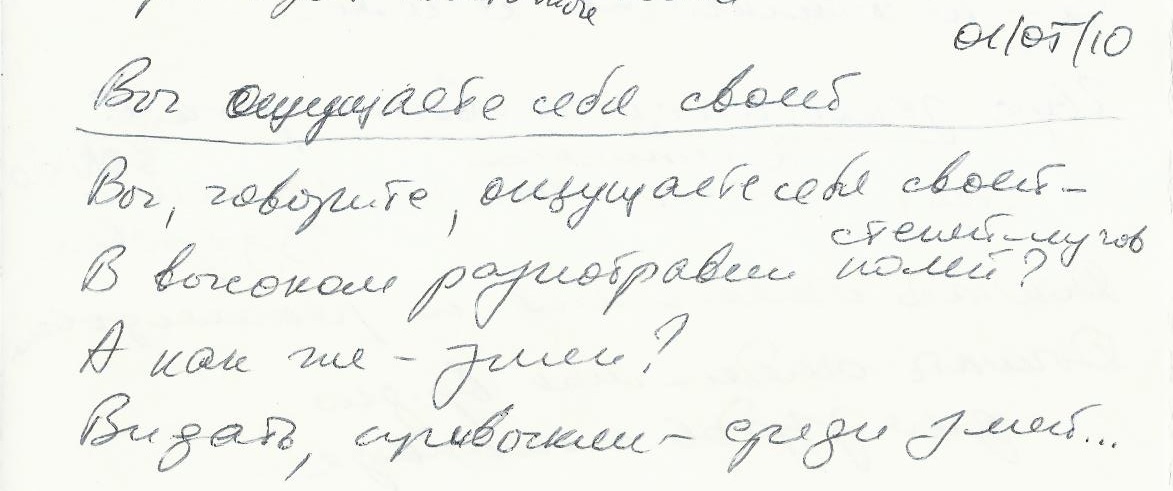 01/05/10
Вы ощущаете себя своей
Вы, говорите, ощущаете себя своей –
степей-лугов
В высоком разнотравии полей?
А как же – змеи?
Видать, привыкли – среди змей...